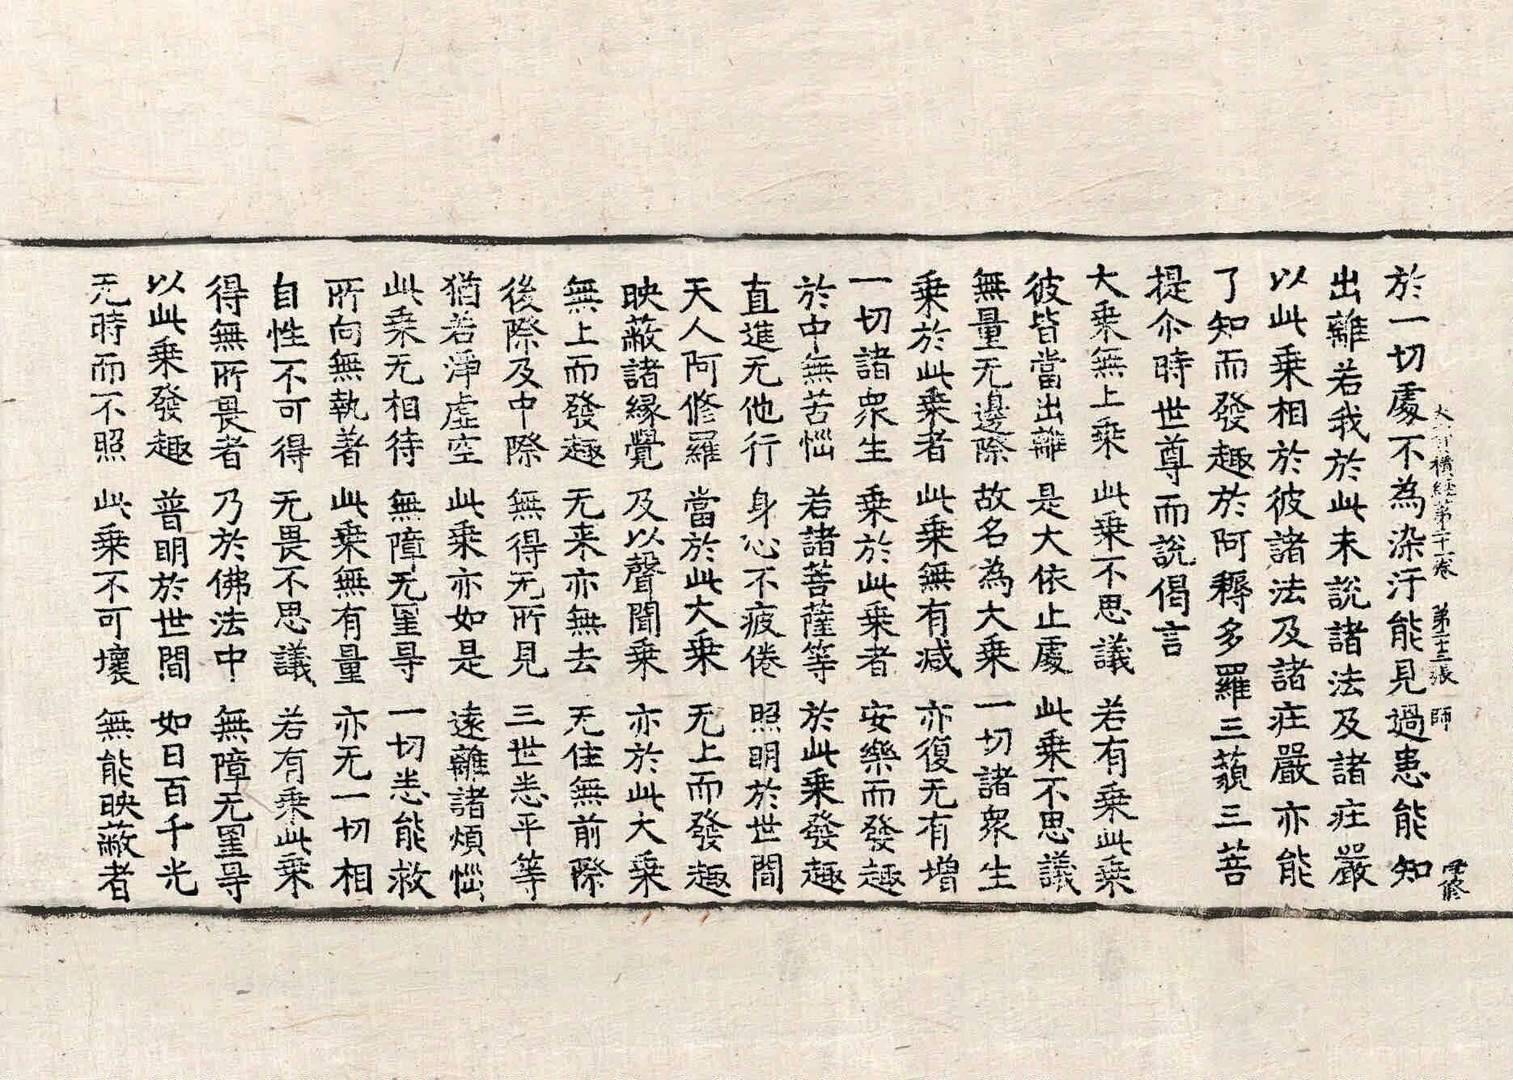 大寶積經第二十一卷 第十三張 師
於一切處不為染汙能見過患能知
出離若我於此未說諸法及諸莊嚴
以此乘相於彼諸法及諸莊嚴亦能
了知而發趣於阿耨多羅三藐三菩
提尒時世尊而說偈言
大乘無上乘 此乘不思議 若有乘此乘
彼皆當出離 是大依止處 此乘不思議
無量无邊際 故名為大乘 一切諸眾生
乘於此乘者 此乘無有減 亦復无有增
一切諸眾生 乘於此乘者 安樂而發趣
於中無苦惱 若諸菩薩等 於此乘發趣
直進无他行 身心不疲倦 照明於世間
天人阿修羅 當於此大乘 无上而發趣
映蔽諸緣覺 及以聲聞乘 亦於此大乘
無上而發趣 无来亦無去 无住無前際
後際及中際 無得无所見 三世悉平等
猶若淨虛空 此乘亦如是 遠離諸煩惱
此乘无相待 無障无罣㝵 一切悉能救
所向無執著 此乘無有量 亦无一切相
自性不可得 无畏不思議 若有乘此乘
得無所畏者 乃於佛法中 無障无罣㝵
以此乘發趣 普明於世間 如日百千光
无時而不照 此乘不可壞 無能映蔽者